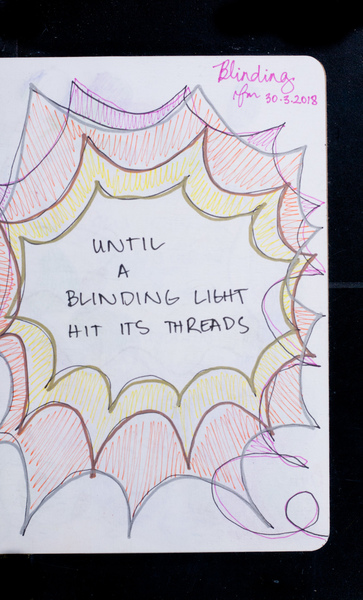 Blinding
rfm 30.3.2018
UNTIL
A
BLINDING LIGHT
HIT ITS THREADS